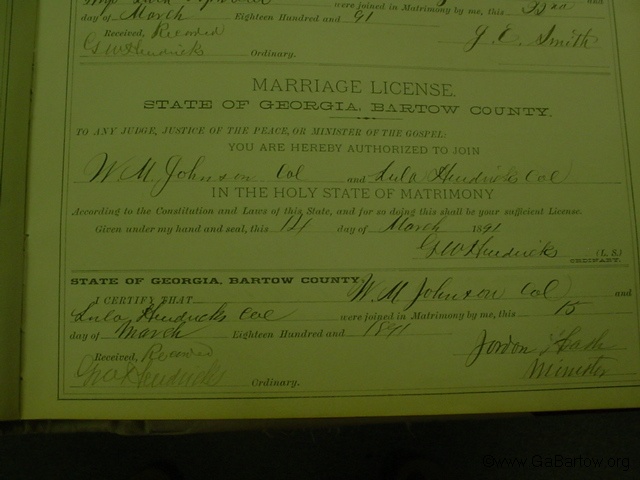 were joined in Matrimony by me, this 22nd
day of March Eighteen Hundred and 91
Received, Recorded J. E. Smith
G W Hendricks Ordinary.
MARRIAGE LICENSE.
STATE OF GEORGIA, BARTOW COUNTY.
TO ANY JUDGE, JUSTICE OF THE PEACE, OR MINISTER OF THE GOSPEL:
YOU ARE HEREBY AUTHORIZED TO JOIN
W. M. Johnson Col and Lula Hendricks Col
IN THE HOLY STATE OF MATRIMONY
According to the Constitution and Laws of this State, and for so doing this shall be your sufficient License.
Given under my hand and seal, this 14 day of March 1891
G W Hendricks (L. S.)
ORDINARY.
STATE OF GEORGIA, BARTOW COUNTY W. M Johnson Col and
I CERTIFY THAT
Lula Hendricks Col were joined in Matrimony by me, this 15
day of March Eighteen Hundred and 1891
Received, Recorded Jordon
G W Hendricks Ordinary. Minister
©www.GaBartow.org